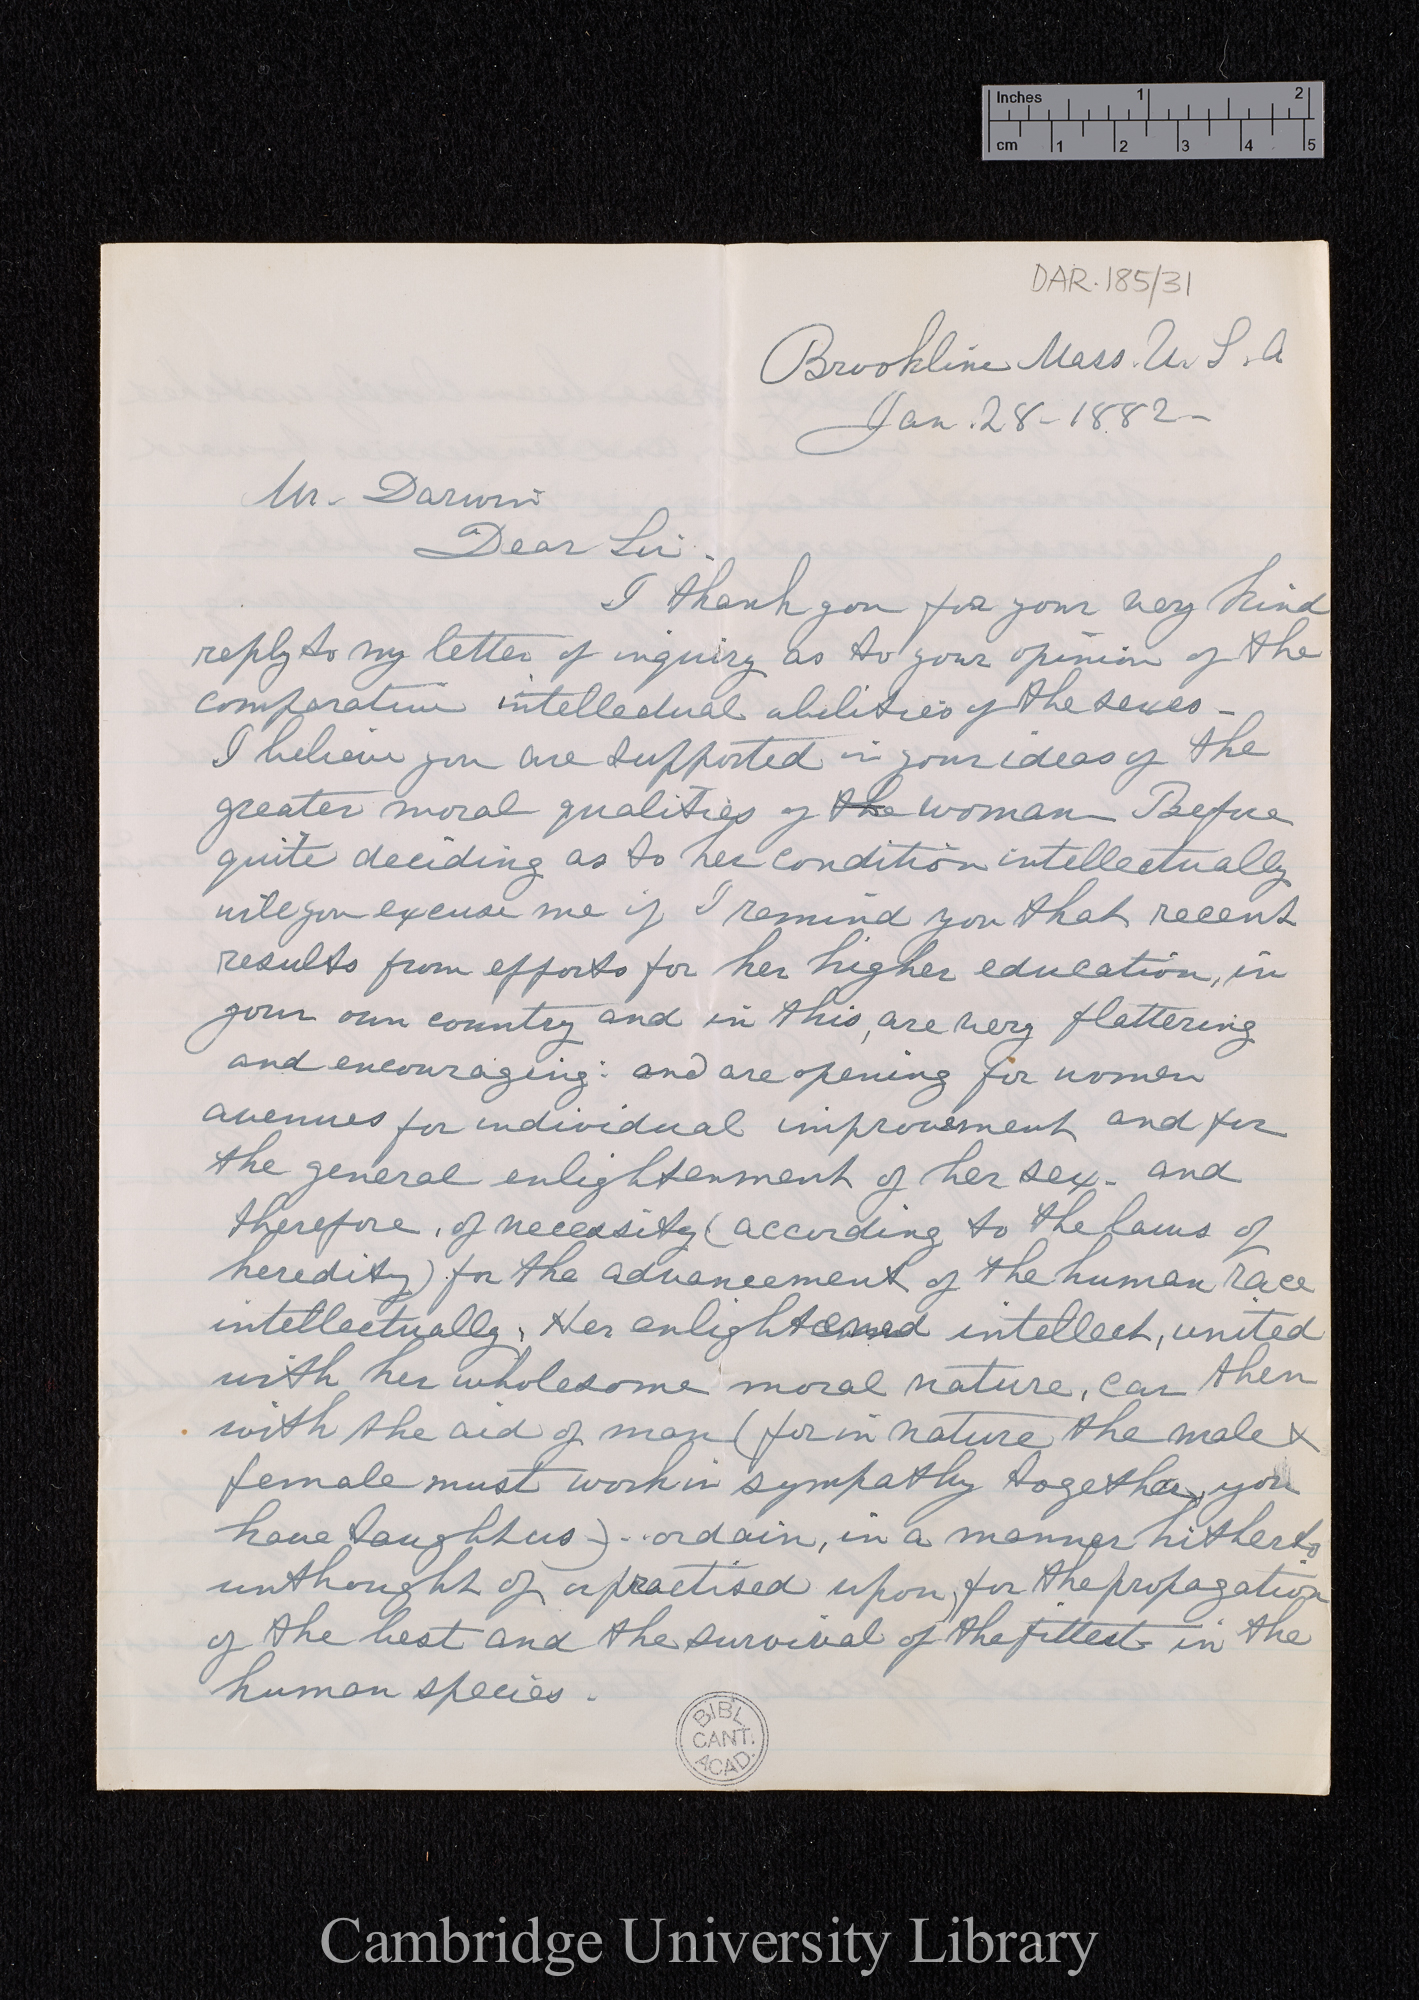 Inches 1 2
cm 1 2 3 4 5
DAR.185/31
Brookline Mass. U. S. A
Jan. 28 - 1882 -
Mr. Darwin
Dear Sir -
I thank you for your very kind
reply to my letter of inquiry as to your opinion of the
comparative intellectual abilities of the sexes -
I believe you are supported in your ideas of the
greater moral qualities of the woman - Before
quite deciding as to her condition intellectually
will you excuse me if I remind you that recent
results from efforts for her higher education, in
your own country and in this, are very flattering
and encouraging: and are opening for women
avenues for individual improvement and for
the general enlightenment of her sex - and
therefore, of necessity (according to the laws of
heredity) for the advancement of the human race
intellectually. Her enlightened intellect, united
with her wholesome moral nature, can then
with the aid of man (for in nature the male &
female must work in sympathy together, you
have taught us) - ordain, in a manner hitherto
unthought of or practised upon, for the propagation
of the best and the survival of the fittest - in the
human species.
BIBL.
CANT.
ACAD.
Cambridge University Library